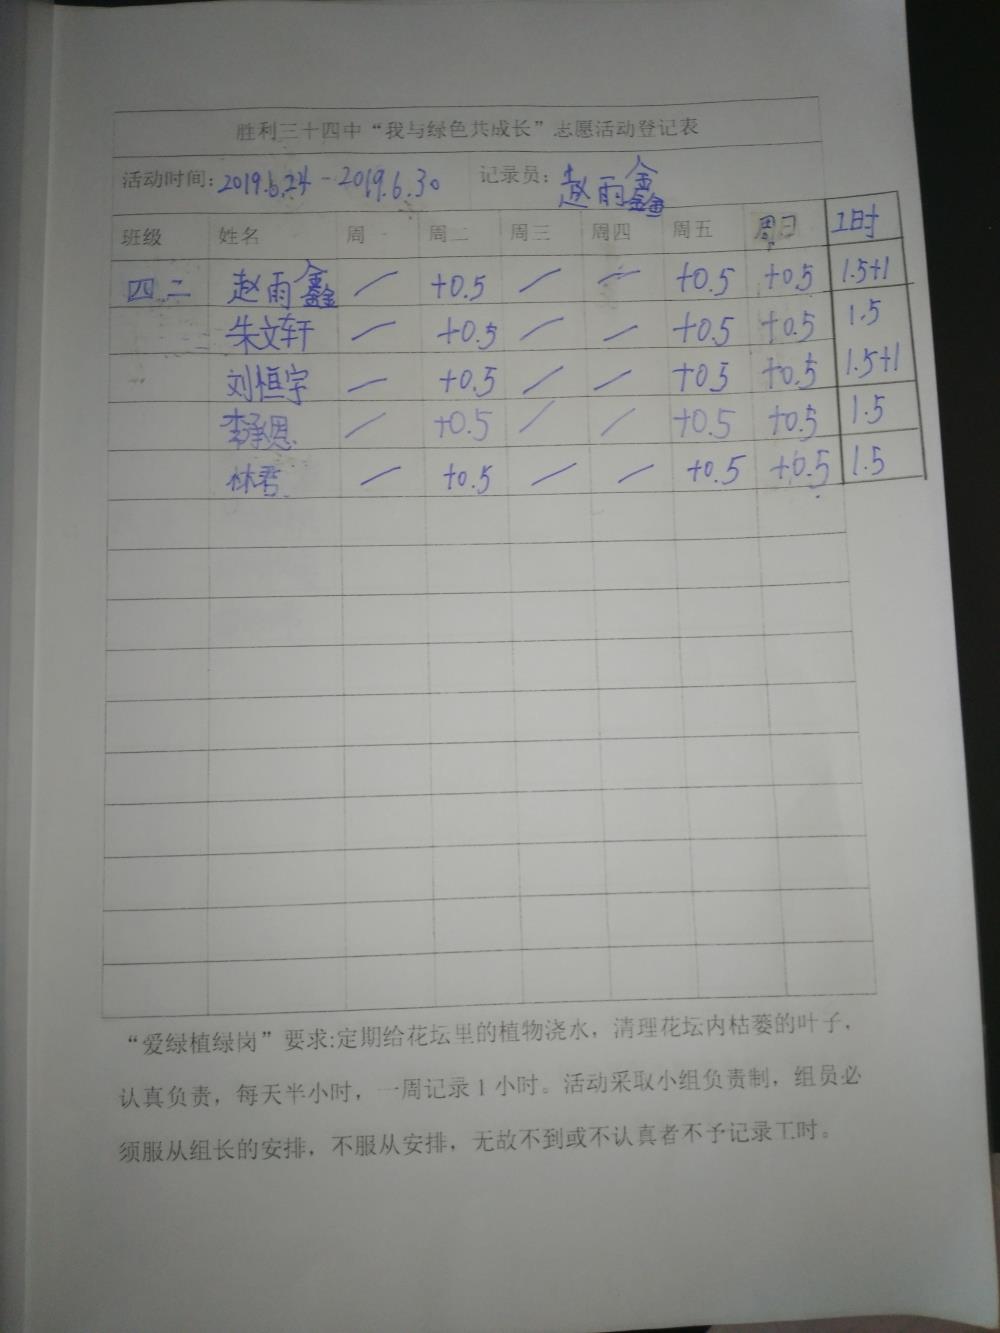 胜利三十四中“我与绿色共成长”志愿活动登记表
活动时间：2019.6.24-2019.6.30 记录员：赵雨鑫
班级 姓名 周一 周二 周三 周四 周五 周日 工时
四二 赵雨鑫 — +0.5 — — +0.5 +0.5 1.5+1
朱文轩 — +0.5 — — +0.5 +0.5 1.5
刘恒宇 — +0.5 — — +0.5 +0.5 1.5+1
李承恩 — +0.5 — — +0.5 +0.5 1.5
林君 — +0.5 — — +0.5 +0.5 1.5
“爱绿植绿岗”要求:定期给花坛里的植物浇水，清理花坛内枯萎的叶子，
认真负责，每天半小时，一周记录1小时。活动采取小组负责制，组员必
须服从组长的安排，不服从安排，无故不到或不认真者不予记录工时。